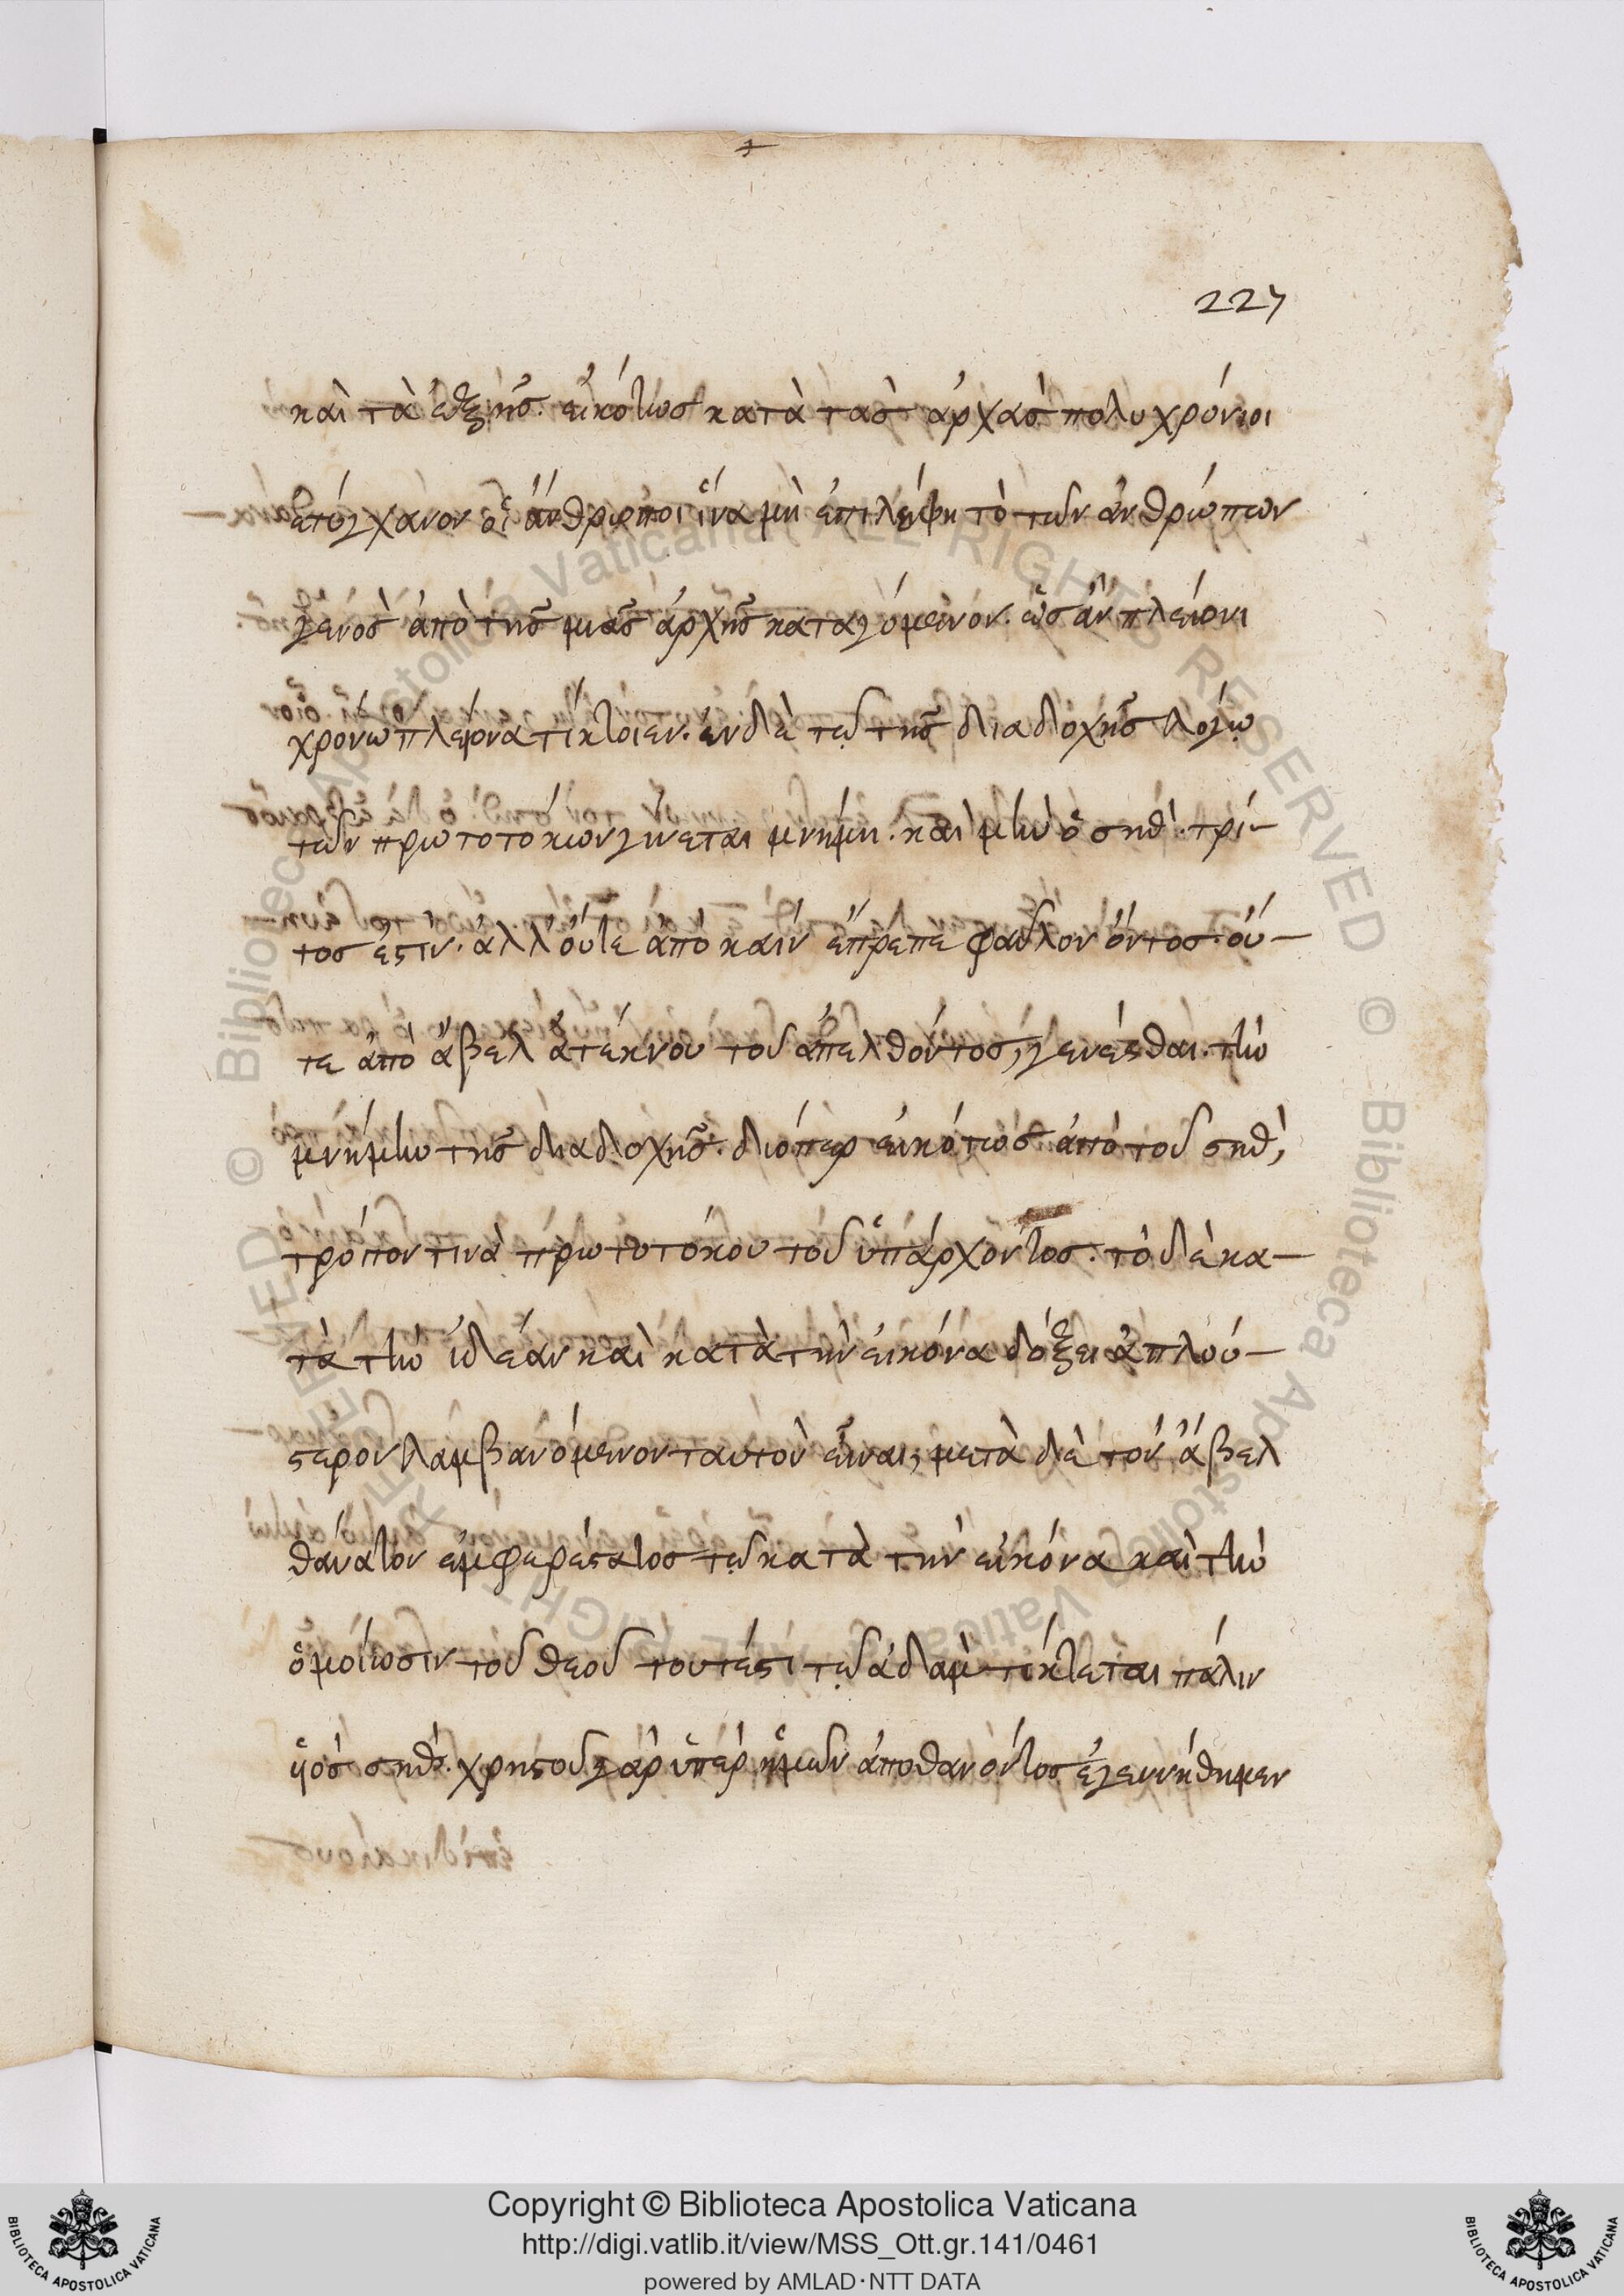 227
καὶ τὰ ἑξῆς. εἰκότως κατὰ τὰς ἀρχὰς πολυχρόνιοι
ἐτύγχανον οἱ ἄνθρωποι ἵνα μὴ ἐπιλείψη τὸ τῶν ἀνθρώπων
γένος ἀπὸ τῆς μιᾶς ἀρχῆς καταγόμενον. ὡς ἂν πλείονι
χρόνω πλείονα τίκτοιεν. ἐν δὲ τῷ τῆς διαδοχῆς λόγῳ
τῶν πρωτοτόκων γίνεται μνήμη. καὶ μὴν ὁ σηθ. τρί-
τος ἐστίν. ἀλλ οὔτε ἀπὸ καὶν ἔπρεπε φαῦλον ὄντος. οὔ-
τε ἀπὸ ἄβελ ἀτέκνου τοῦ ἀπελθόντος, γενέσθαι. τὴν
μνήμην τῆς διαδοχῆς. διόπερ εἰκότως ἀπὸ τοῦ σηθ,
τρόπον τινὰ πρωτοτόκου τοῦ ὑπάρχοντος. τὸ δὲ κα-
τὰ τὴν ἰδέαν καὶ κατὰ τὴν εἰκόνα δόξει ἁπλού-
στερον λαμβανόμενον ταυτὸν εἶναι, μετὰ δὲ τὸν ἄβελ
θάνατον ἐμφερέστατος τῷ κατὰ τὴν εἰκόνα καὶ τὴν
ὁμοίωσιν τοῦ θεοῦ τουτέστι τῷ ἀδὰμ τίκτεται πάλιν
ὑὸς σηθ. χρηστοῦ γὰρ ὑπὲρ ἡμῶν ἀποθανόντος ἐγεννήθημεν
© Biblioteca Apostolica Vaticana ALL RIGHTS RESERVED
© Biblioteca Apostolica Vaticana ALL RIGHTS RESERVED
BIBLIOTECA APOSTOLICA VATICANA
Copyright © Biblioteca Apostolica Vaticana
http://digi.vatlib.it/view/MSS_Ott.gr.141/0461
powered by AMLAD·NTT DATA
BIBLIOTECA APOSTOLICA VATICANA